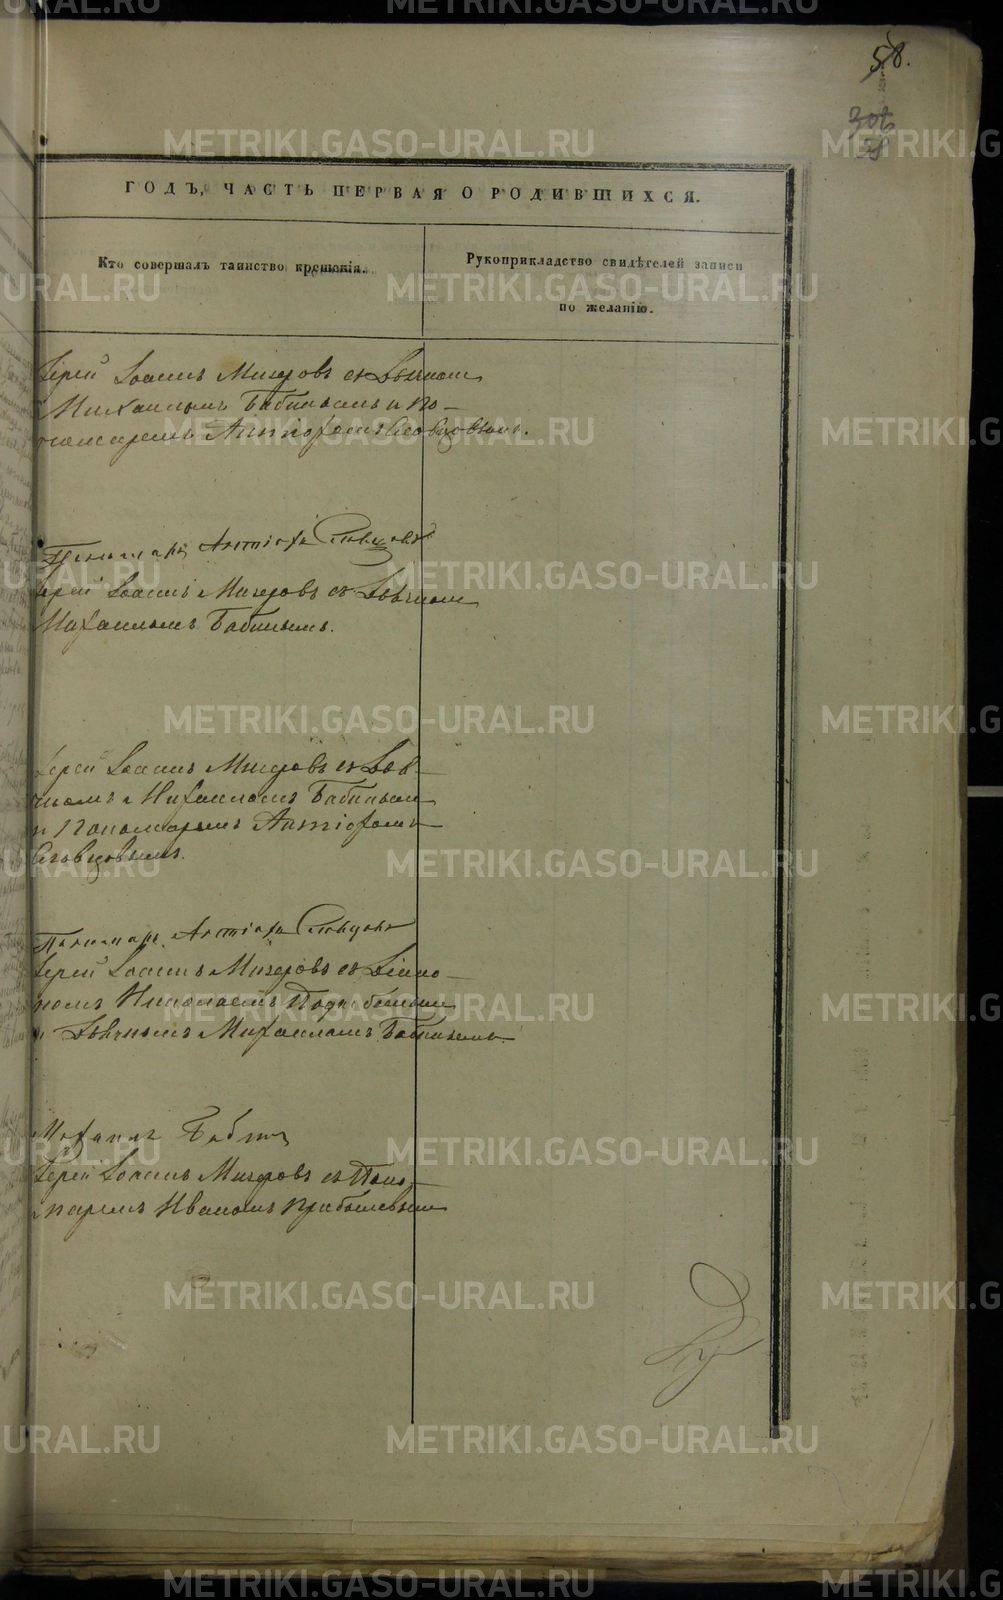 58.
306
58
ГОДЪ, ЧАСТЬ ПЕРВАЯ О РОДИВШИХСЯ.
Кто совершалъ таинство крещенія.
Рукоприкладство свидѣтелей записи
по желанію.
Іерей Іоаннъ Мизеровъ съ Дьячкомъ
Михаиломъ Бабинымъ и По-
номаремъ Антіохомъ Словцовымъ.
Пономарь Антіохъ Словцовъ
Іерей Іоаннъ Мизеровъ съ Дьячкомъ
Михаиломъ Бабинымъ.
Іерей Іоаннъ Мизеровъ съ Дья-
чкомъ Михаиломъ Бабинымъ
и Пономаремъ Антіохомъ
Словцовымъ.
Пономарь Антіохъ Словцовъ
Іерей Іоаннъ Мизеровъ съ Діако-
номъ Николаемъ
и Дьячкомъ Михаиломъ Бабинымъ
Михаилъ Бабинъ
Іерей Іоаннъ Мизеровъ съ Поно-
маремъ Иваномъ
METRIKI.GASO-URAL.RU